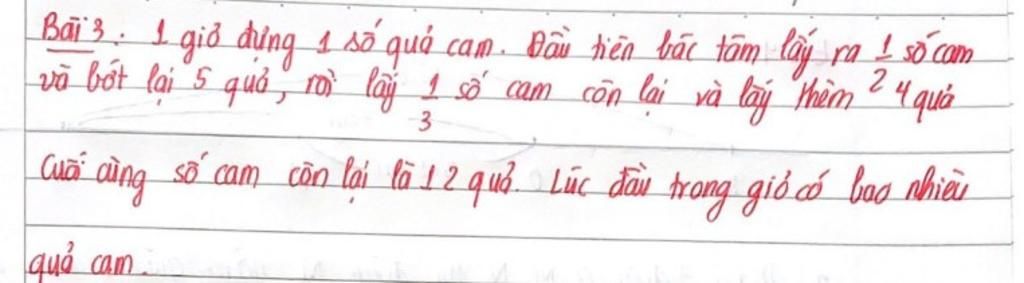 Bài 3: 1 giỏ đựng 1 số quả cam. Đầu tiên bác tâm lấy ra 1/2 số cam
và bớt lại 5 quả, rồi lấy 1/3 số cam còn lại và lấy thêm 4 quả
Cuối cùng số cam còn lại là 12 quả. Lúc đầu trong giỏ có bao nhiêu
quả cam.